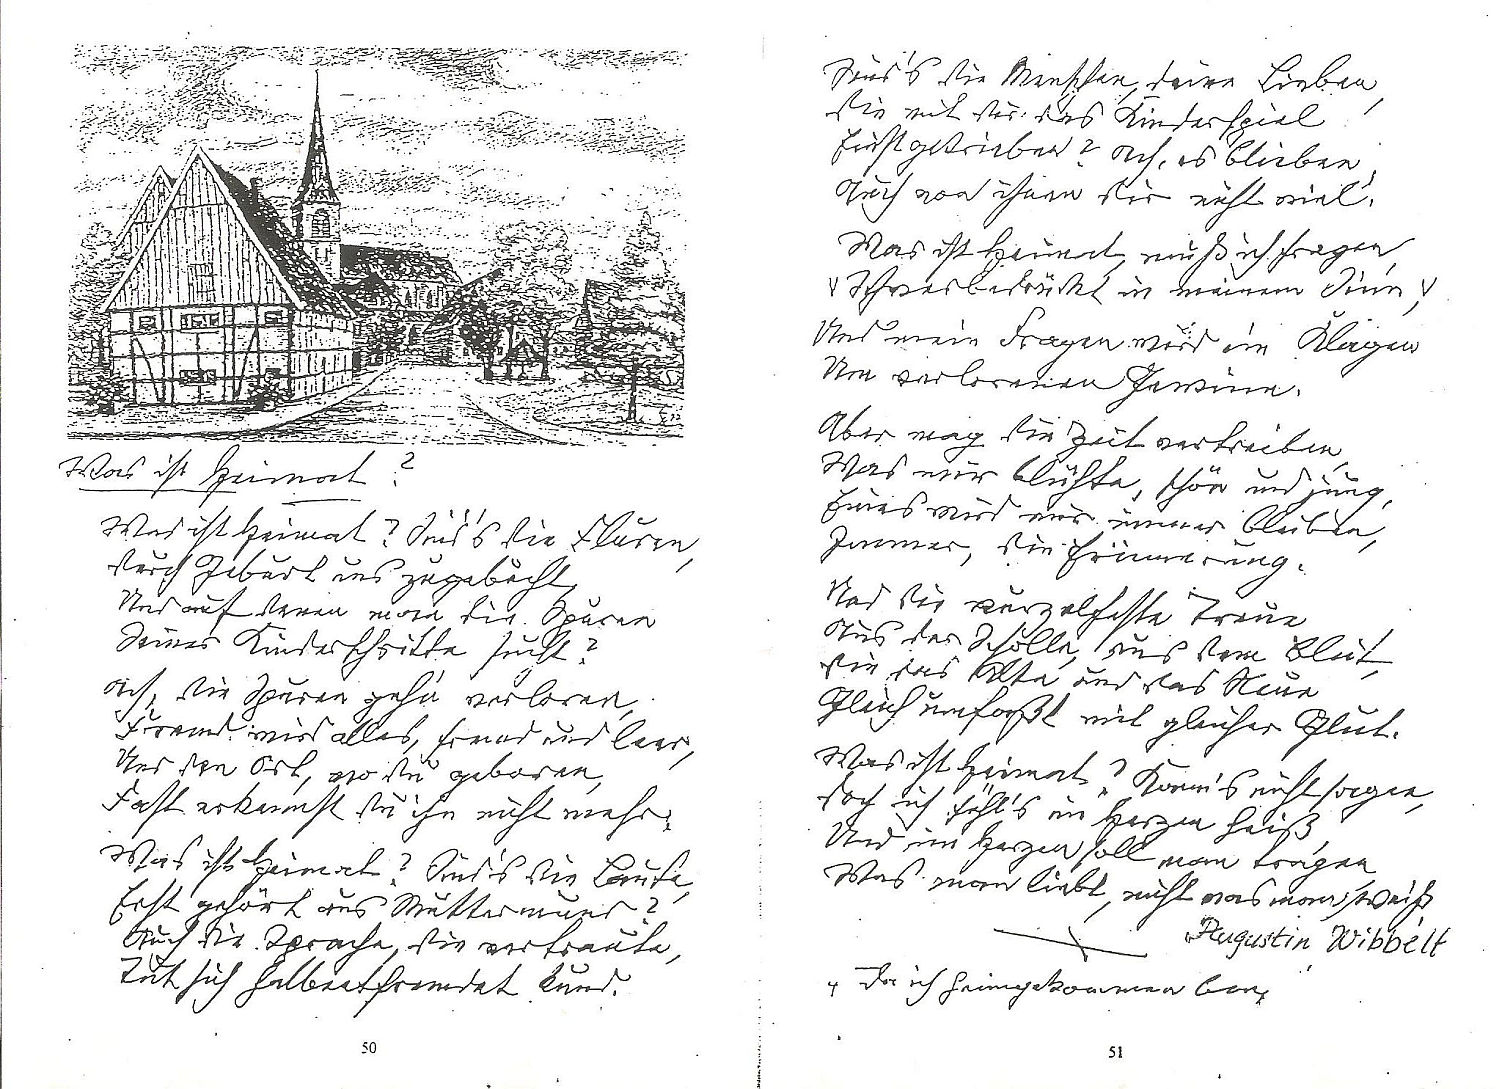 Was ist Heimat?
Was ist Heimat? Sind's die Fluren,
durch Geburt uns zugebucht,
Und auf denen man die Spuren
Seiner Kinderschritte sucht?
Ach, die Spuren gehn verloren,
Fremd wird alles, fremd und leer,
Und den Ort, wo du geboren,
Fast erkennst du ihn nicht mehr.
Was ist Heimat? Sind's die Laute,
Erst gehört aus Muttermund?
Auch die Sprache, die vertraute,
Tut sich halbentfremdet kund.
50
Sind's die Menschen, deine Lieben,
die mit dir das Kinderspiel
Einst getrieben? Ach, es blieben
Auch von ihnen dir nicht viel.
Was ist Heimat, muß ich fragen
Schwerbedrückt in meinem Sinn,
Und mein Fragen wird ein Klagen
Um verlorenen Gewinn.
Aber mag die Zeit vertreiben,
Was mir blühte, schön und jung,
Eines wird mir immer bleiben,
Immer, die Erinnerung.
Und die wurzelfeste Treue
Aus der Scholle, aus dem Blut,
die das Alte und das Neue
Gleich umfaßt mit gleicher Glut.
Was ist Heimat? Kann's nicht sagen,
doch ich fühl's im Herzen heiß
Und im Herzen soll man tragen
Was man liebt, nicht was man weiß
Augustin Wibbelt
Da ich heimgekommen bin,
51